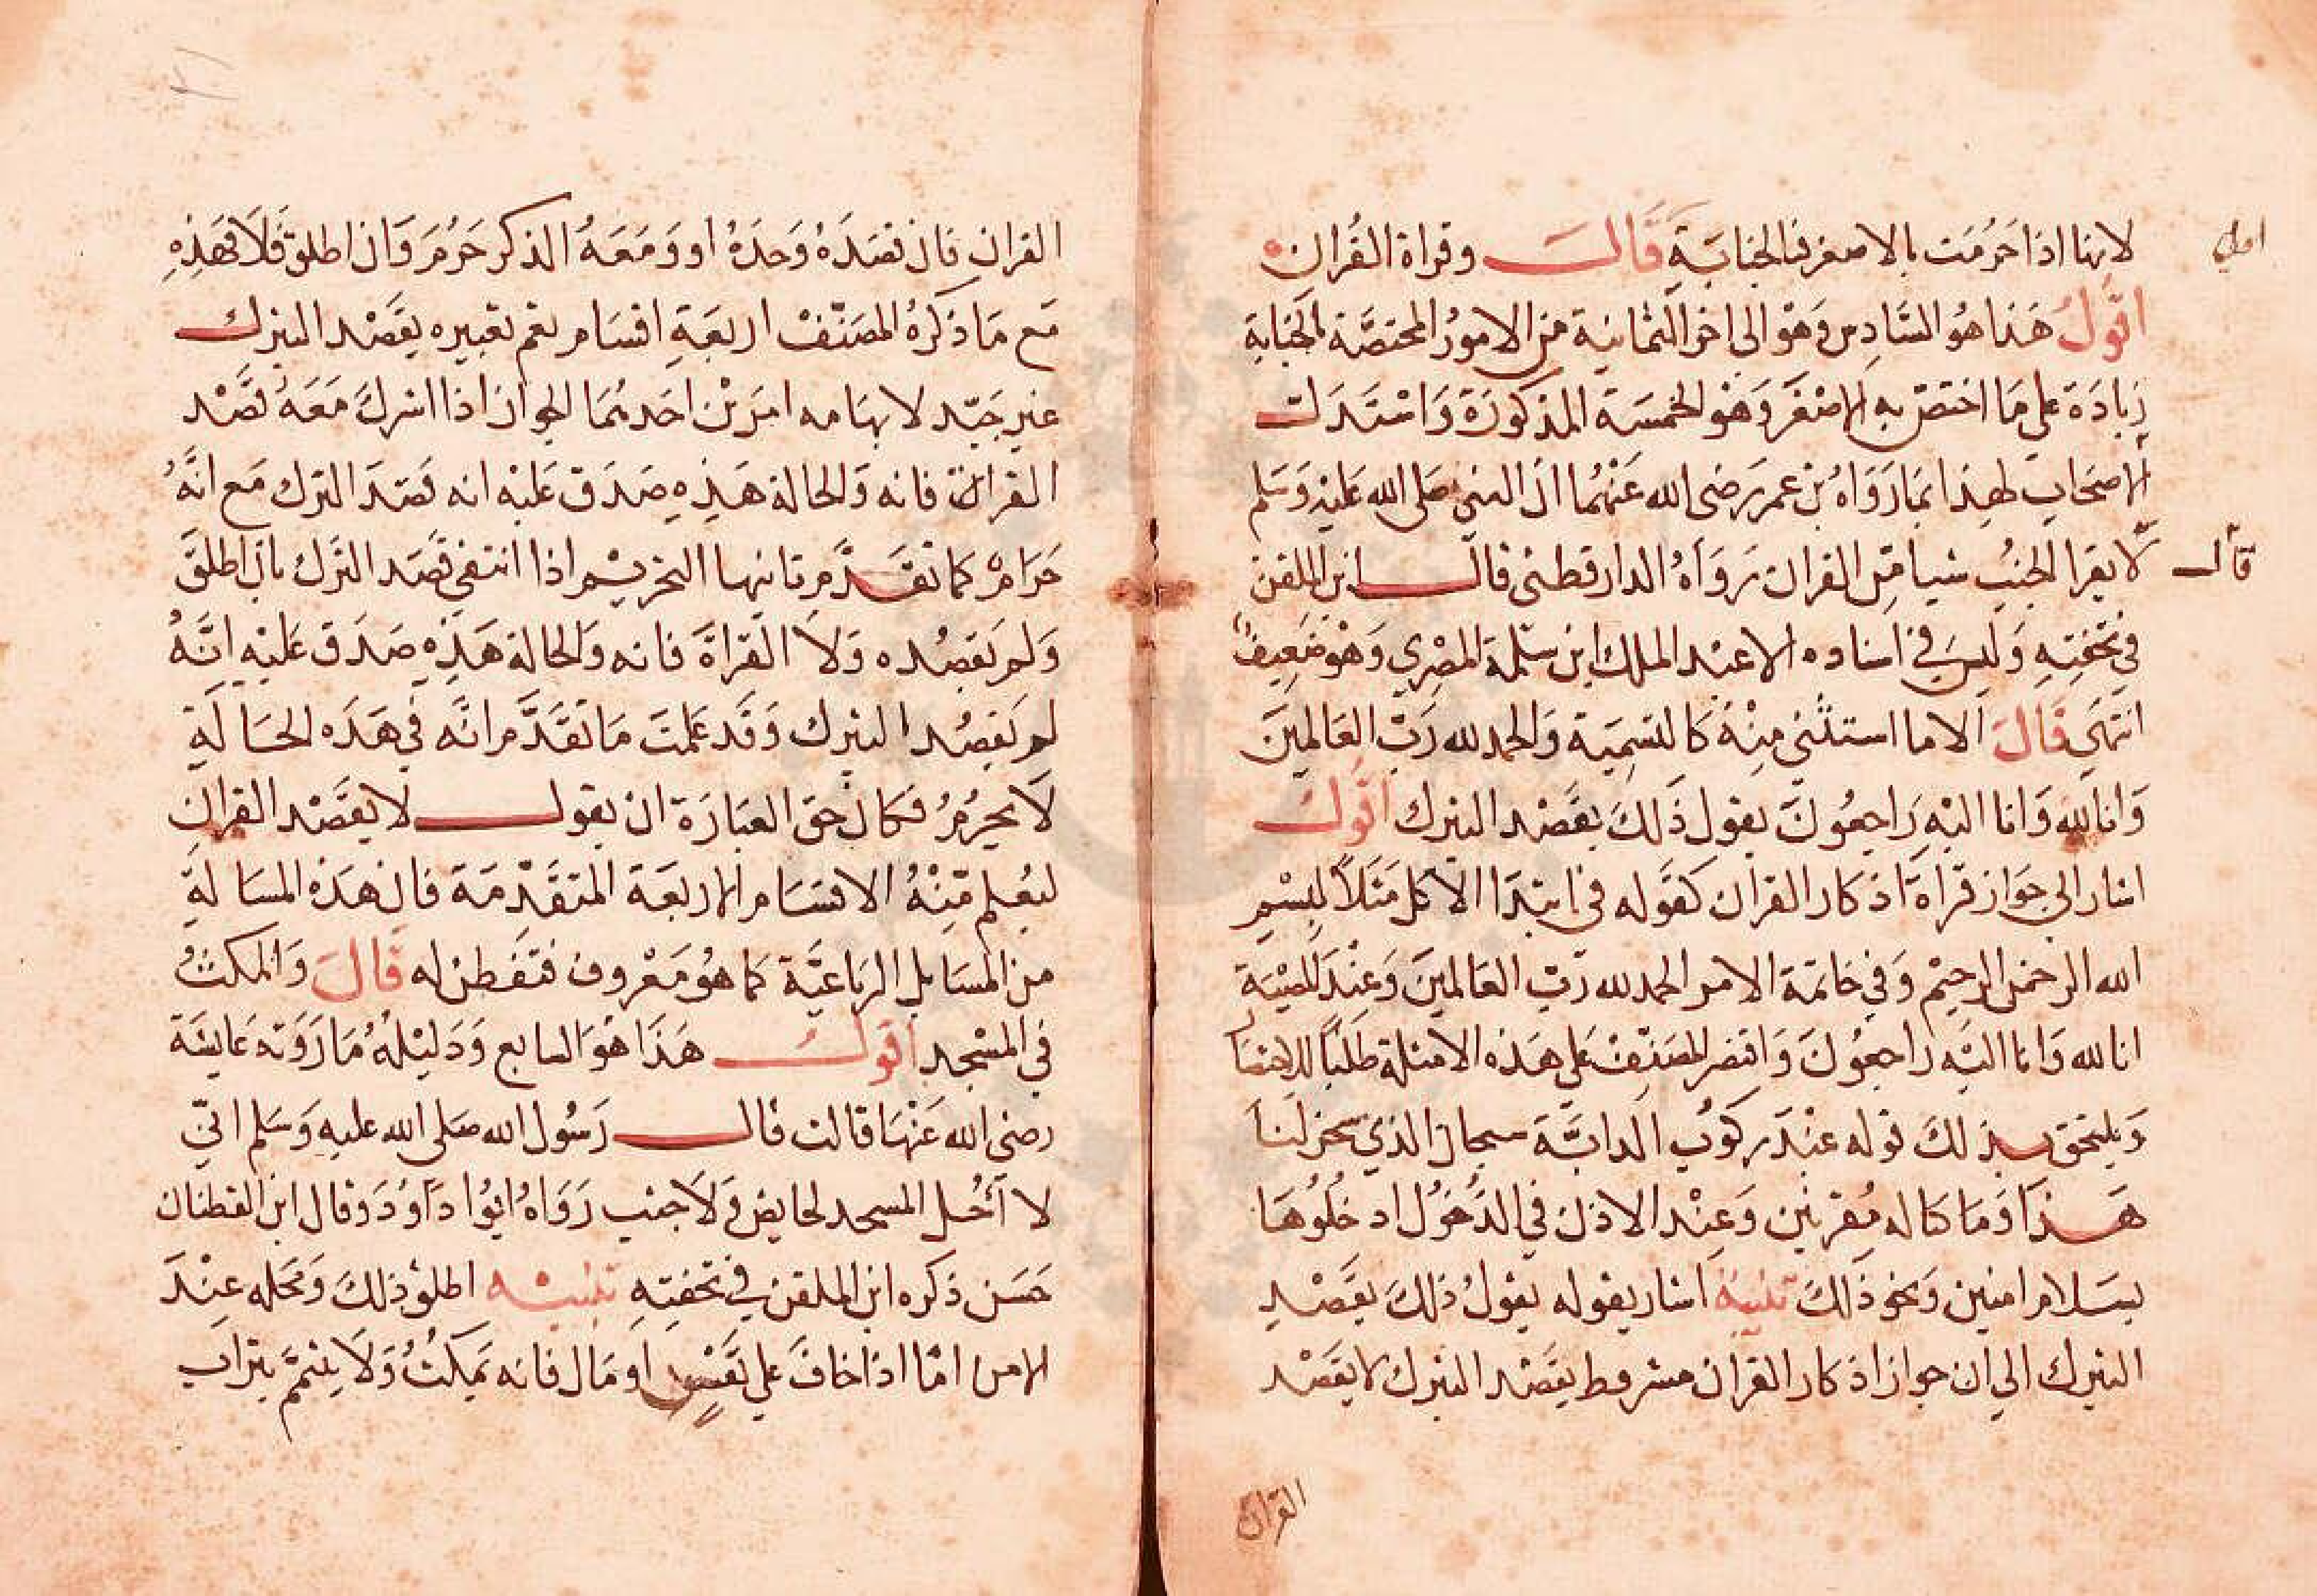 لانها اذا حرمت بالاصغر فبالجنابة قال وقراة القران
اولي
اقول هذا هو السادس وهو الي اخر الثمانية من الامور المختصة بالجنابة
زيادة علي ما اختص به الاصغر وهو الخمسة المذكورة واستدل
الاصحاب لهذا بما رواه بن عمر رضى الله عنهما ان النبي صلى الله عليه وسلم
قال
لا يقرا الجنب شيا من القران رواه الدارقطنى قال ابن الملقن
في تحفته وليس في اسناده الا عبد الملك ابن سلمة المصري وهو ضعيف
انتهى قال الا ما استثني منه كالتسمية والحمد لله رب العالمين
وانا لله وانا اليه راجعون يقول ذلك بقصد التبرك اقول
اشار الي جواز قراة اذكار القران كقوله في ابتدا الاكل مثلا بسم
الله الرحمن الرحيم وفي خاتمة الامر الحمد لله رب العالمين وعند المصيبة
انا لله وانا اليه راجعون واقتصر المصنف على هذه الامثلة طلبا للاختصار
ويلتحق بذلك قوله عند ركوب الدابة سبحان الذي سخر لنا
هذا وما كنا له مقرنين وعند الاذن في الدخول ادخلوها
بسلام امنين ونحو ذلك تنبيه اشار بقوله يقول ذلك بقصد
التبرك الي ان جواز اذكار القران مشروط بقصد التبرك لا بقصد
القران
القران فان قصده وحده او ومعه الذكر حرم وان اطلق فلا فهذه
مع ما ذكره المصنف اربعة اقسام نعم تعبيره بقصد التبرك
غير جيد لايهامه امرين احدهما الجواز اذا اشرك معه قصد
القران فانه والحالة هذه صدق عليه انه قصد التبرك مع انه
حرام كما تقدم ثانيها التحريم اذا انتفي قصد التبرك بان اطلق
ولم يقصده ولا القراة فانه والحالة هذه صدق عليه انه
لم يقصد التبرك وقد علمت ما تقدم انه في هذه الحالة
لا يحرم فكان حق العبارة ان يقول لا بقصد القران
ليعلم منه الاقسام الاربعة المتقدمة فان هذه المسالة
من المسايل الرباعية كما هو معروف فتفطن له قال والمكث
في المسجد اقول هذا هو السابع ودليله ما روته عايشة
رضى الله عنها قالت قال رسول الله صلى الله عليه وسلم اني
لا احل المسجد لحايض ولا جنب رواه ابوا داود وقال ابن القطان
حسن ذكره ابن الملقن في تحفته تنبيه اطلق ذلك ومحله عند
الامن اما اذا خاف علي نفس او مال فانه يمكث ولا يتيمم بتراب